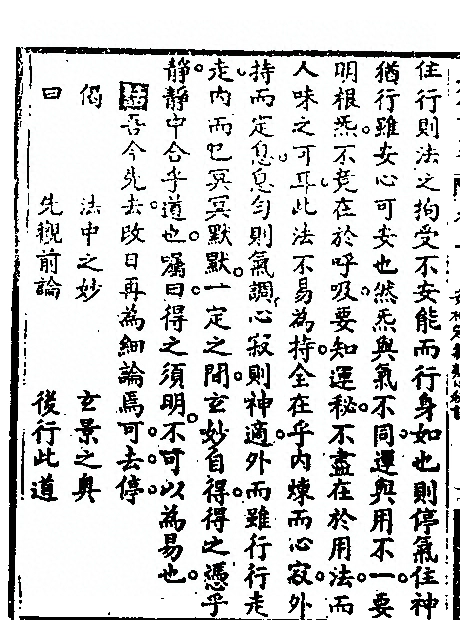 住行則法之拘受不安能而行身如也則停氣住神
猶行雖安心可安也然炁與氣不同運與用不一要
明根炁不竟在於呼吸要知運秘不盡在於用法而
人味之可耳此法不易為持全在乎内煉而心寂外
持而定息息勻則氣調心寂則神適外而雖行行走
走内而已冥冥默默一定之間玄妙自得得之憑乎
靜靜中合乎道也囑曰得之須明不可以為易也
吾今先去改日再為細論焉可去停
偈 法中之妙 玄景之奥
曰 先觀前論 後行此道